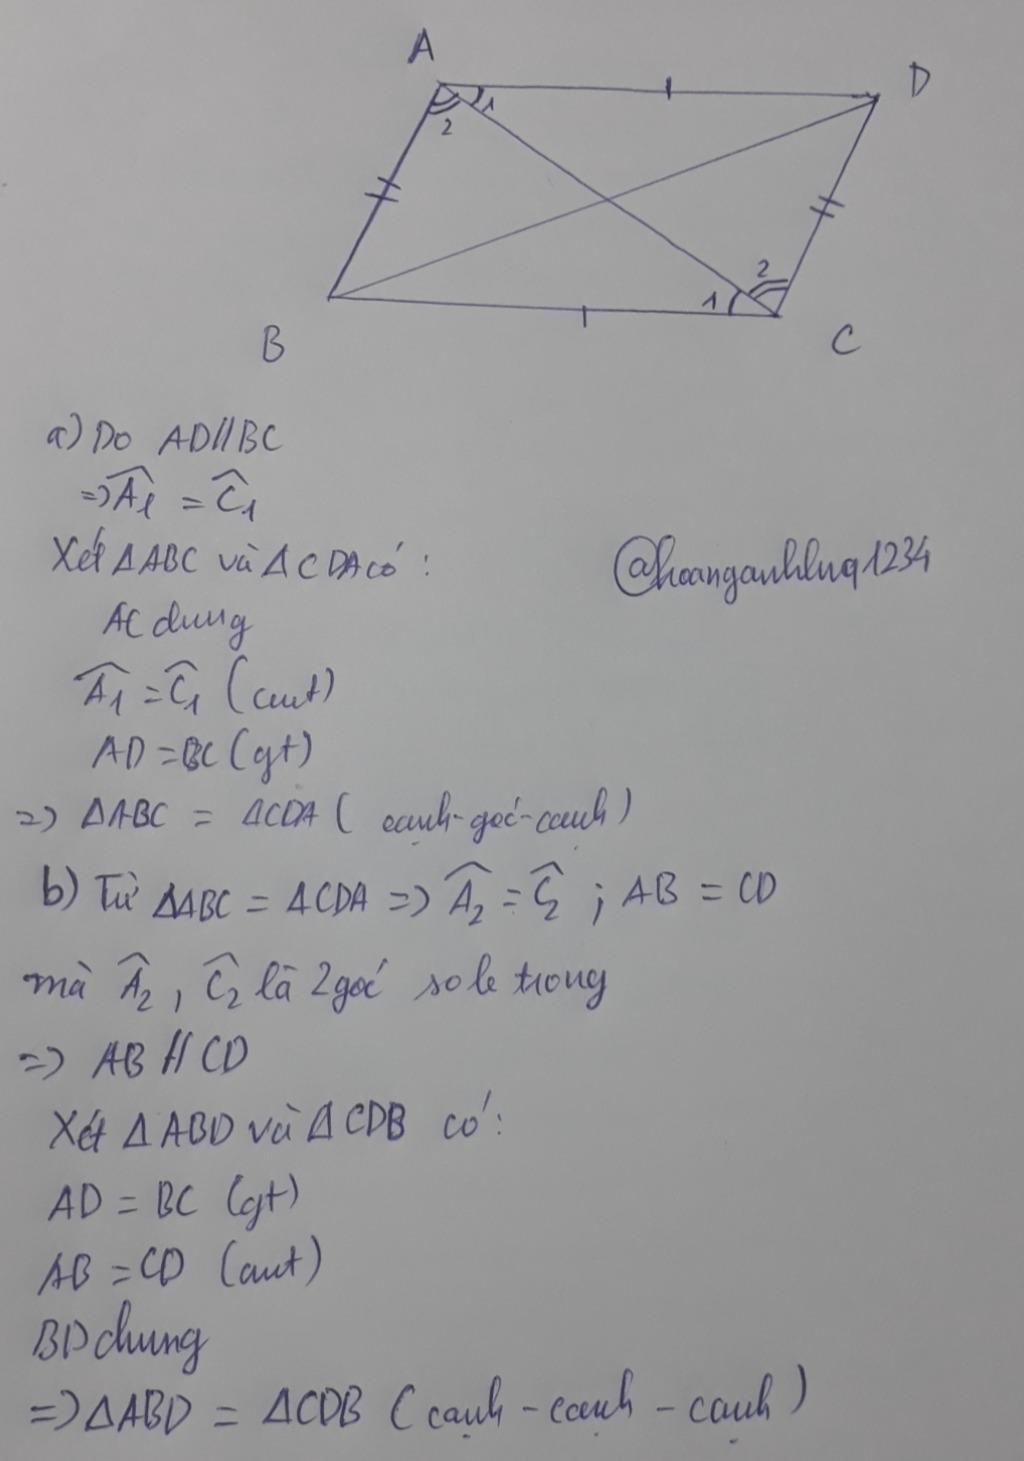 A
D
1
2
2
1
B
C
a) Do AD//BC
=> Â1 = Ĉ1
Xét ΔABC và ΔCDA có:
@hoanganhlnq1234
AC chung
Â1 = Ĉ1 (cmt)
AD = BC (gt)
=> ΔABC = ΔCDA (cạnh-góc-cạnh)
b) Từ ΔABC = ΔCDA => Â2 = Ĉ2 ; AB = CD
mà Â2, Ĉ2 là 2 góc so le trong
=> AB // CD
Xét ΔABD và ΔCDB có:
AD = BC (gt)
AB = CD (cmt)
BD chung
=> ΔABD = ΔCDB (cạnh - cạnh - cạnh)